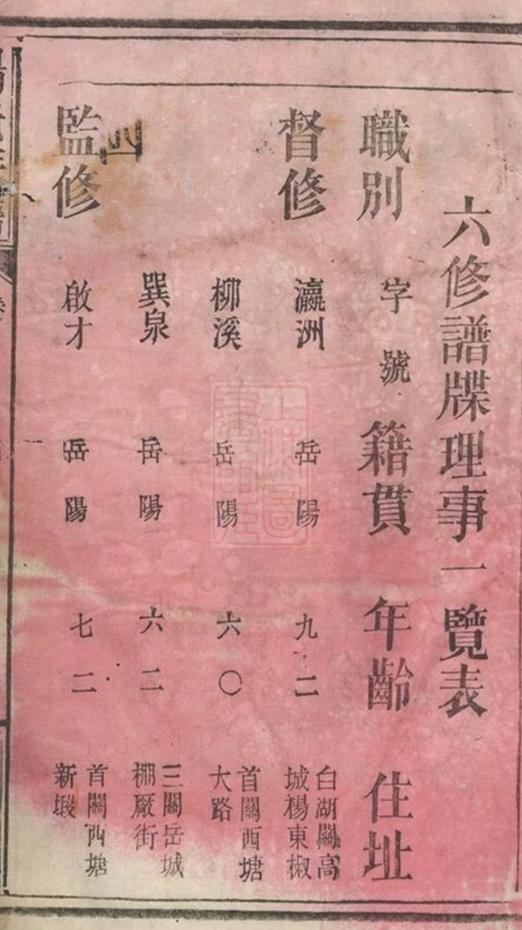 六修譜牒理事一覽表
職別 字號 籍貫 年齡 住址
督修 瀛洲 岳陽 九二 白湖關高城楊東椒
柳溪 岳陽 六〇 首關西塘大路
巽泉 岳陽 六二 三關岳城棚厰街
監修 啟才 岳陽 七二 首關西塘新塅